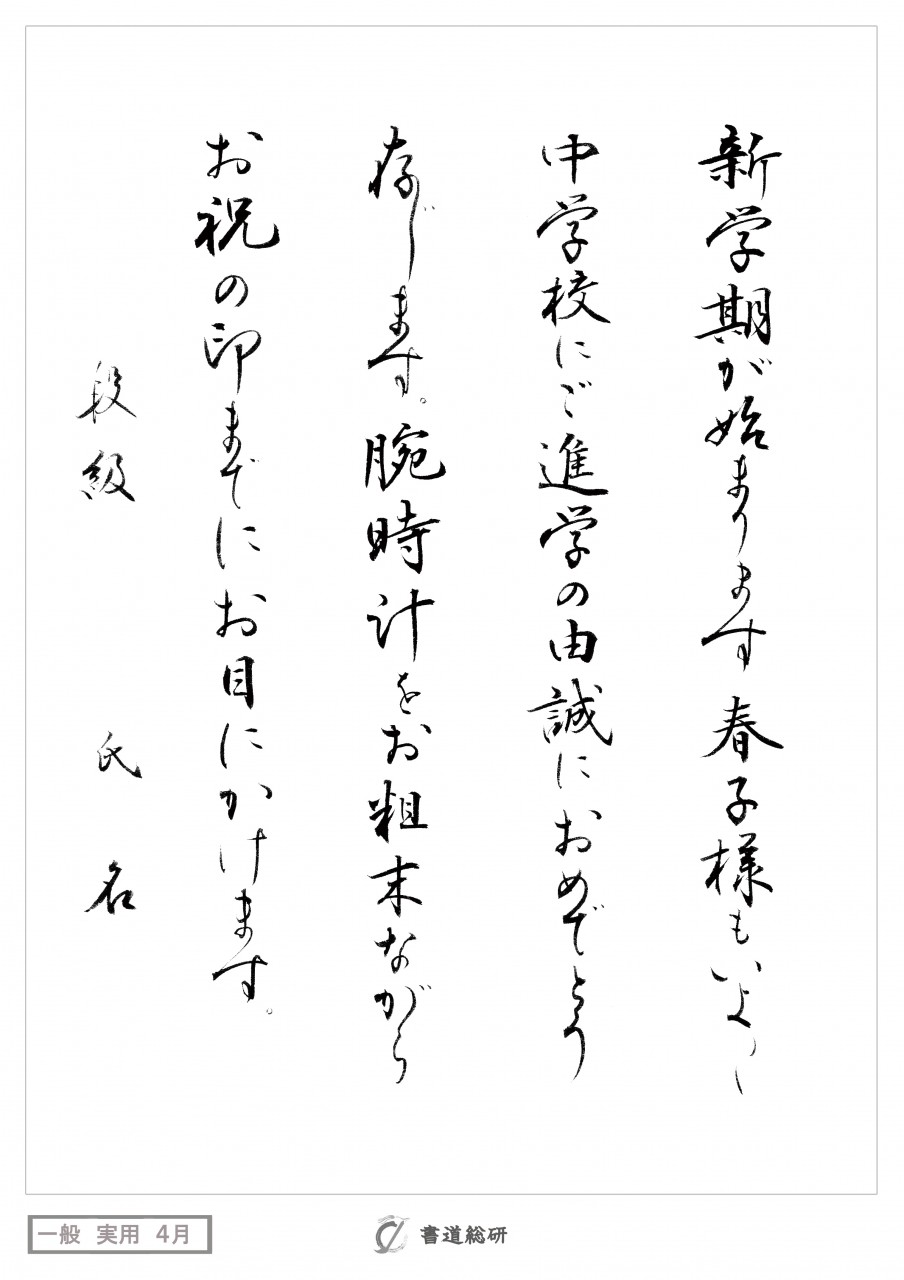 新学期が始まります春子様もいよ〱
中学校にご進学の由誠におめでとう
存じます。腕時計をお粗末ながら
お祝の印までにお目にかけます。
段級 氏名
一般 実用 4月
書道総研